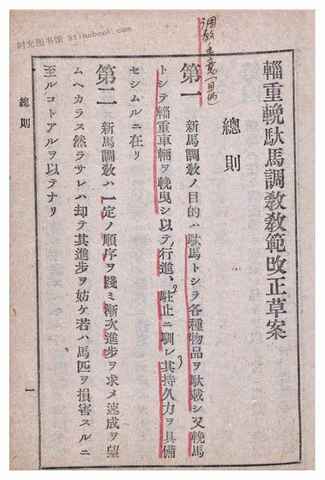 时光图书馆 91linobook.com
調教ノ着意(目的)
輜重輓馱馬調教教範改正草案
總則
第一 新馬調教ノ目的ハ馱馬トシテ各種物品ヲ馱載シ又輓馬
トシテ輜重車輛ヲ輓曳シ以テ行進、駐止ニ馴レ其持久力ヲ具備
セシムルニ在リ
第二 新馬調教ハ一定ノ順序ヲ踐ミ漸次進步ヲ求メ速成ヲ望
ムヘカラス然ラサレハ却テ其進步ヲ妨ケ若ハ馬匹ヲ損害スルニ
至ルコトアルヲ以テナリ
總則
一